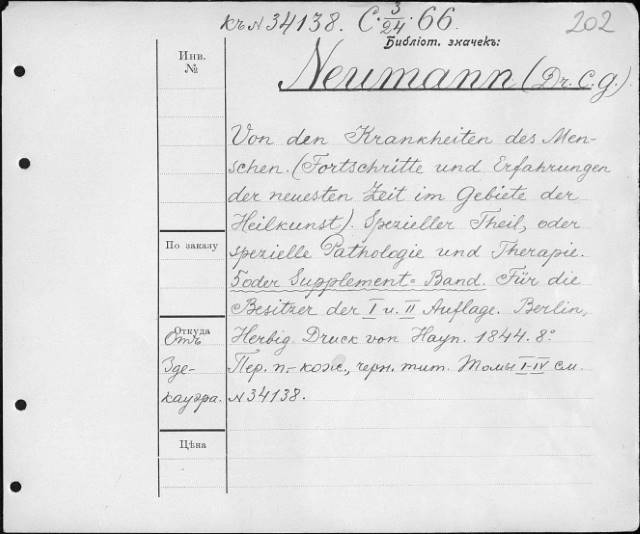 къ №34138. C. 3/24. 66.
202
Библіот. значекъ:
Инв.
№
Neumann (Dr. C. G.)
Von den Krankheiten des Men-
schen. (Fortschritte und Erfahrungen
der neuesten Zeit im Gebiete der
Heilkunst). Spezieller Theil, oder
По заказу
spezielle Pathologie und Therapie.
5 oder Supplement-Band. Für die
Besitzer der I u. II Auflage. Berlin,
Откуда
Отъ
Herbig. Druck von Hayn. 1844. 8°.
Зде-
Пер. п.-кож., черн. тит. Томы I-IV см.
кауэра.
№34138.
Цѣна